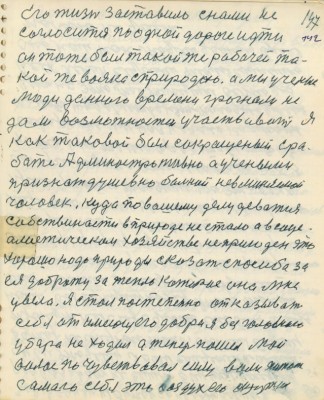 Его жизн заставила снами не 147
согласится поодной дороге идти 142
он тоже был такой же рабачей та-
кой же вояка с природою. а мы ученые
люди данного времени грогнам не
дам возможности участвиват Я
как таковой был сокращеный сра-
боте Административно а учеными
признат душевно болной невминяемой
человек, куда по вашему делу деватия
собствиности в природе не стало а в соци-
алистическом хозяйстве не приходен Это
хорошо надо природи сказат способа за
ея доброту за тепло которое она мне
цвела. Я стал постепенно отказыват
себя от имеющего добра. Я без головного
убара не ходил а тепер пошел мой
волос почувствовал силу воли
самаго себя это воздухего